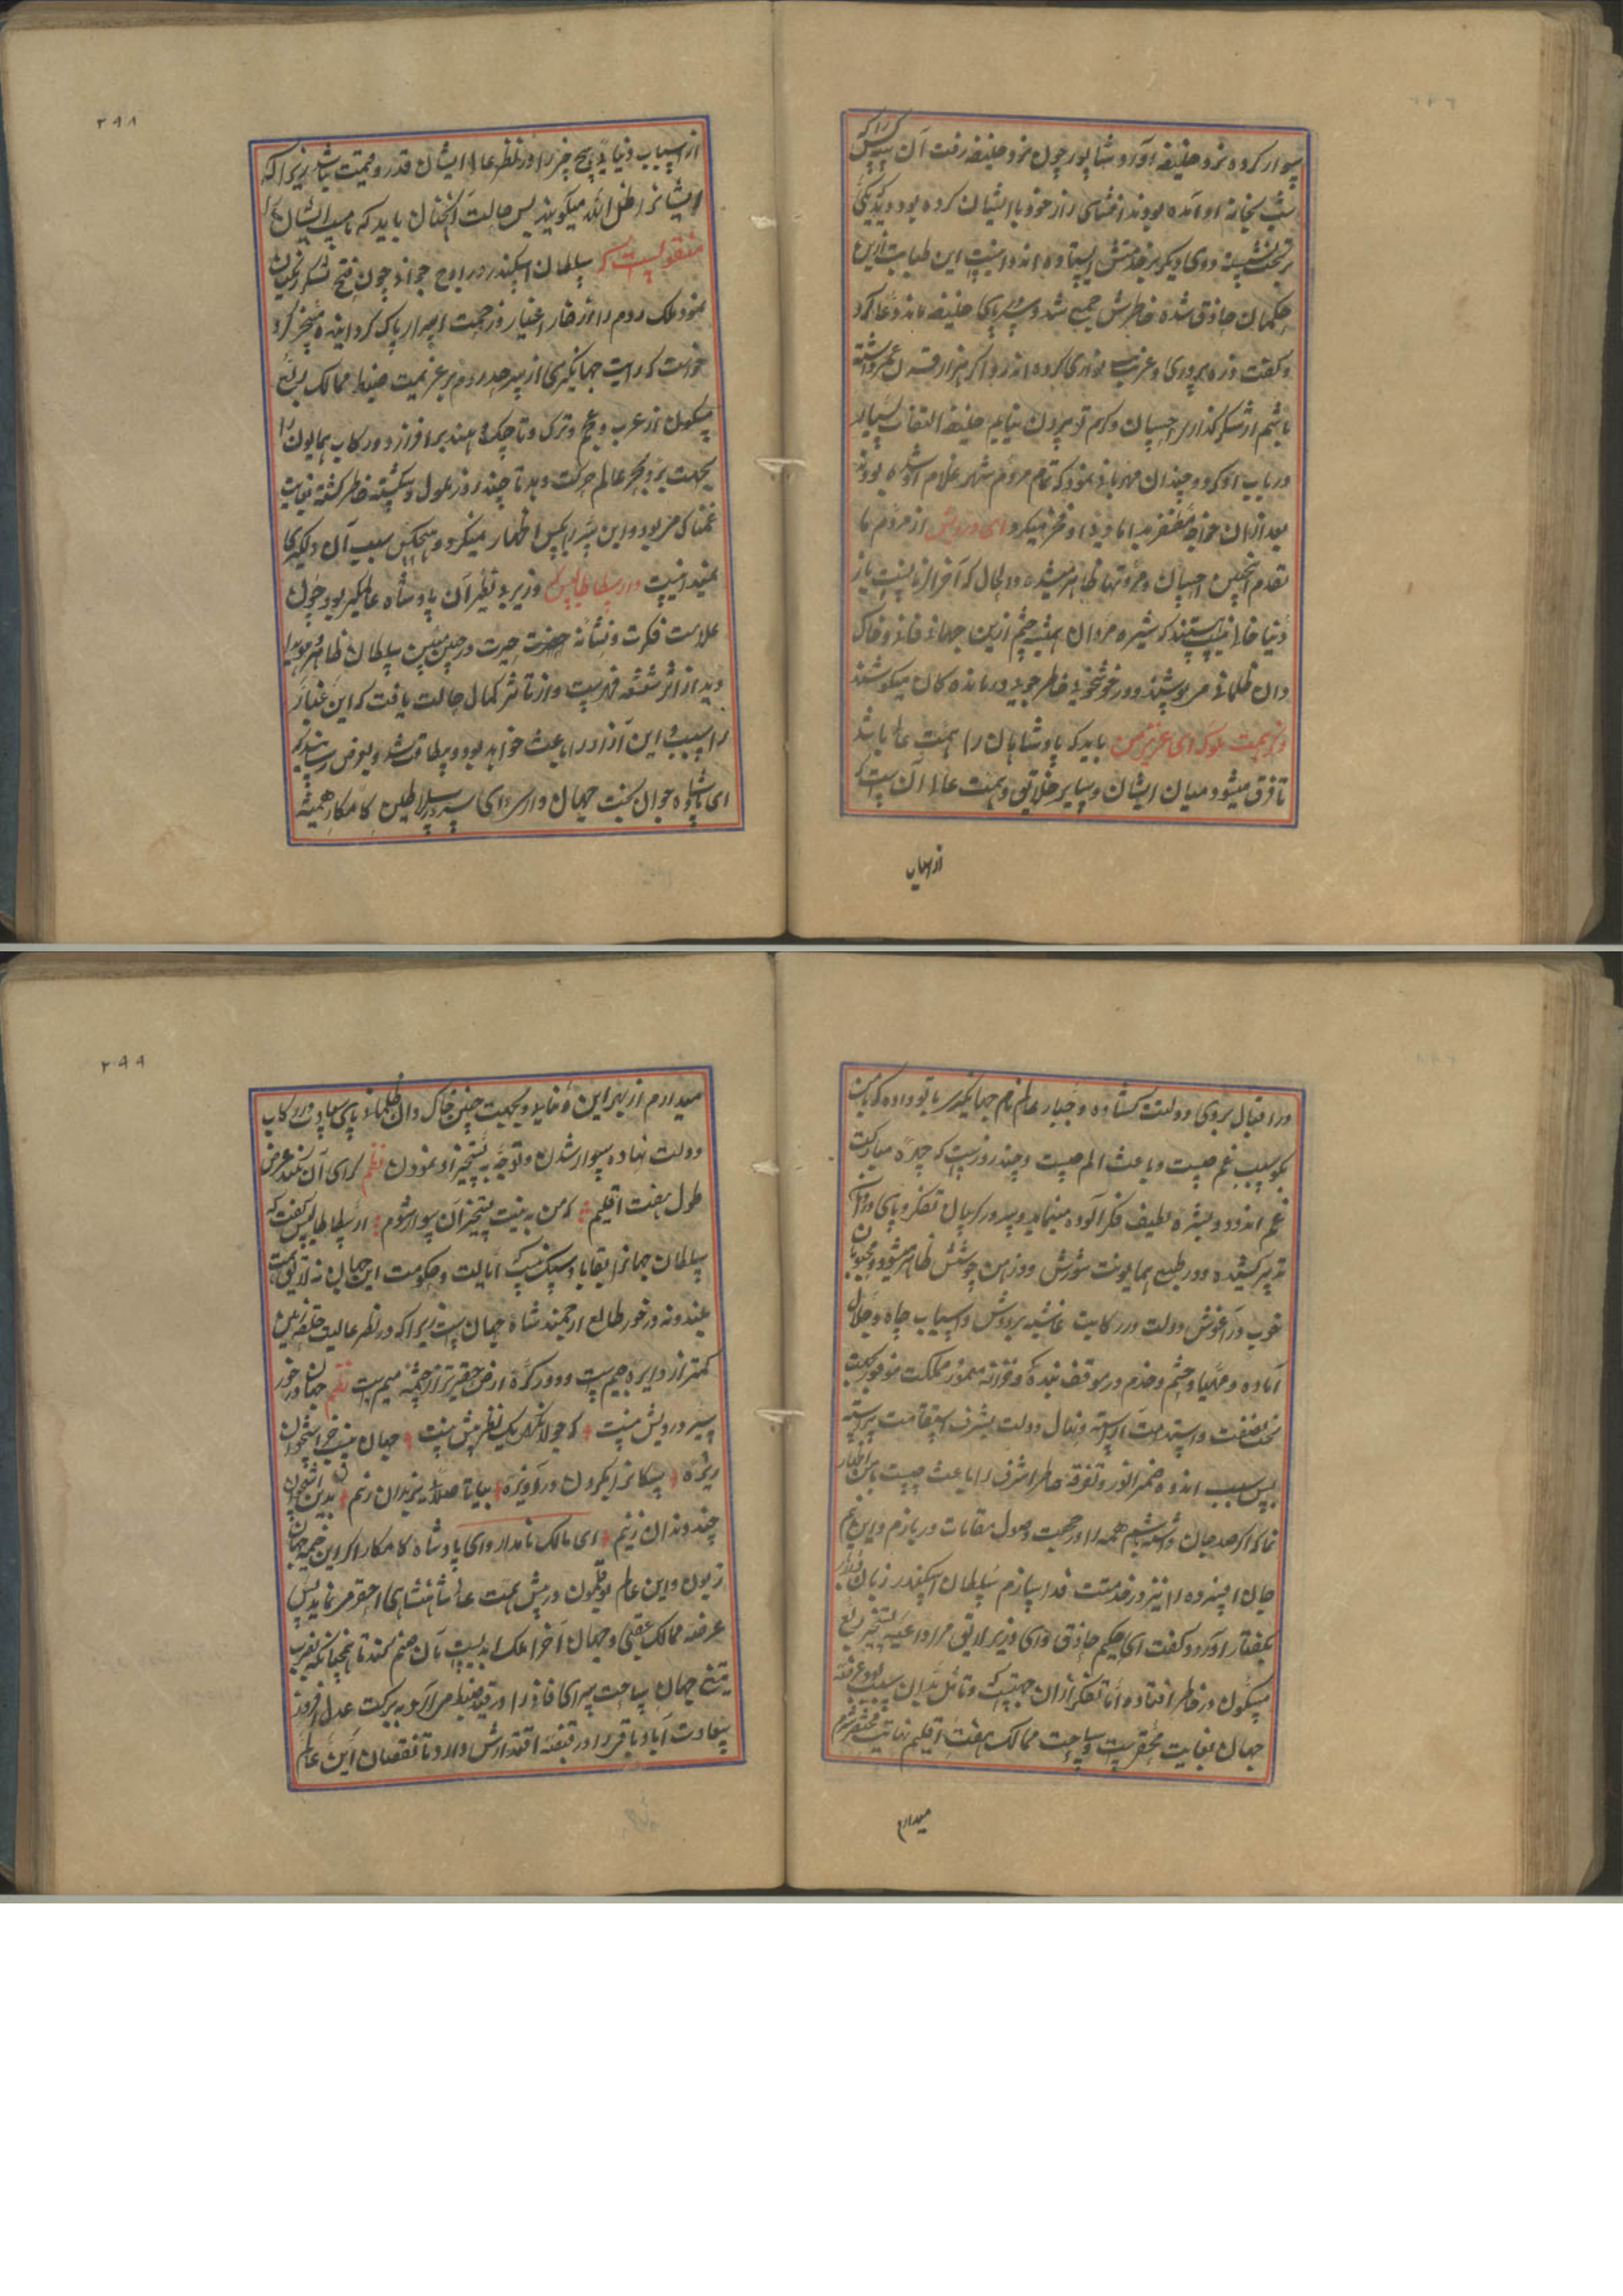 سوار کرده نزد خلیفه آورد و شاپور چون نزد خلیفه رفت آن سه کس را که
شب بخانه او آمده بودند افشای راز خود با ایشان کرده بود دید که یکی
بر تخت نشسته و وی دیگر بخدمتش ایستاده اند دانست این طبابت ازین
حکیمان حاذق شده خاطرش جمع شد و سر در پای خلیفه ماند و دعا کرد
و گفت ذره پروری و غریب نوازی کرده اند و اگر هزار قرن عمر داشته
باشم از شکرگذاری احسان و کرم تو بیرون نیایم خلیفه التفات بسیار
در باب او کرد و چندان مهربانی نمود که تمام مردم شهر غلام او شده بودند
بعد ازان خواجه مظفر به دامادی او فخر میکرد ای درویش از مردم ما
تقدم اینچنین احسان و مروتها ظاهر میشده و الحال که آخر الزمانست باز
دنیا خالی نیست هستند که شیره مردان همت چشم ازین جهان فانی و خاک
دان ظلمانی می پوشند و در خوشخویی خاطر جویی درمانده کان میکوشند
در همت ملوک ای عزیز من باید که پادشاهان را همت عالی باشد
تا فرق میشود میان ایشان و سایر خلایق و همت عالی آن ست که
از اسباب
۲۹۸
از اسباب دنیایی هیچ چیز را در نظر عالی ایشان قدر و قیمت نباشد زیرا که
ایشانرا ظل الله میگویند پس حالت آنچنان باید که مناسب ایشان
منقولست که سلطان اسکندر در اوج جوانی چون فتح لشکر زنگیان
نمود ملک روم را از خار اغیار و زحمت اشرار پاک گردانیده مسخر کرد
خواست که رایت جهانگیری از سرحد روم بر عزیمت ضبط ممالک ربع
مسکون از عرب و عجم و ترک و تاجیک و هند برافرازد و رکاب همایون را
بجهت بر و بحر عالم حرکت دهد تا چند روز ملول و شکسته خاطر گشته بغایت
غمناک می بود و این سر را بکس اظهار نمیکرد و هیچکس سبب آن دلگیری
نمیدانست و ارسطاطالیس که وزیر بی نظیر آن پادشاه عالمگیر بود چون
علامت فکرت و نشانه حیرت در جبین مبین سلطان ظاهر و هویدا
دید از اثر شعشعه فراست و از تاثیر کمال حالت یافت که این غبار
را سببی و این آزار را باعث خواهد بود و بی طاقت شد و بعرض رسانید که
ای پادشاه جوان بخت جهان دار و ای سرور سلاطین کامکار همیشه
در اقبال بر وی دولتت گشاده و جبار عالم زمام جهانگیری بتو داده که با من
بگو سبب غم چیست و باعث الم چیست و چند روز است که چهره مبارکت
غم اندود و بشره لطیف فکر آلوده مینماید و سر در گریبان تفکر و پای در دامان
تدبیر کشیده و در طبع همایونت شورش و در ذهن جوشش ظاهر میشود و محبوبان
خوب در آغوش دولت در رکابت غاشیه بر دوش و اسباب جاه و جلال
آماده و مهیا و حشم و خدم در موقف بندگی و خزانه معمور و مملکت موفور تخت
نصفت و استدامت آراسته و نهال دولت بشرف استقامت پیراسته
پس سبب اندوه ضمیر انور و تفرقه خاطر اشرف را باعث چیست با من اظهار
نما که اگر صد جان داشته باشم همه را در جهت وصول مقامات در بازم و این نیم
جان افسرده را نیز در خدمتت فدا سازم سلطان اسکندر زبان درربار
بگفتار آورد و گفت ای حکیم حاذق و ای وزیر لایق مرا داعیه تسخیر ربع
مسکون در خاطر افتاده اما تفکر از آن جهتست و تأمل بدان سبب بود عرصه
جهان بغایت محقر ست و ساحت ممالک هفت اقلیم نهایت مختصر شرم
میدارم
۲۹۹
میدارم از بهر این دنیا فانی و بجهت چنین خاک دان ظلمانی پای سعادت در رکاب
دولت نهاده سوار شدن و توجه به تسخیر او نمودن نظم کرای آن نکند عرض
طول هفت اقلیم که من به نیت تسخیر آن سوار شوم ارسطاطالیس گفت که
سلطان جهانرا بقا باد و شک نیست که ایالت و حکومت این جهان نه لایق همت
بلند و نه در خور طالع ارجمند شاه جهان ست زیرا که در نظر عالیت حلقه زمین
کمتر از دایره جیم ست و دور کره ارض حقیرتر از چشمه میم است نظم جهان در خور
سیر درویش نیست که جولانگهش یک نظر بیش نیست جهان نیست جز استخوان
ریزه سگانرا بگردون درآویزه بیا تا صلایی بزندان زنیم بدین استخوان
چند دندان زنیم ای مالک نامدار و ای پادشاه کامکار اگر این خیمه جهان
زبون و این عالم بوقلمون در پیش همت عالی شاهنشاهی احقر می نماید پس
عرصه ممالک عقبی و جهان آخر را ملک ابدیست بآن ضم کند تا همچنانکه بضرب
تیغ جهان ساحت سرای فانی را در قید ضبط می آری به برکت عدل افروز
سعادت آباد باقی را در قبضه اقتدارش در آرد تا نقصان این عالم